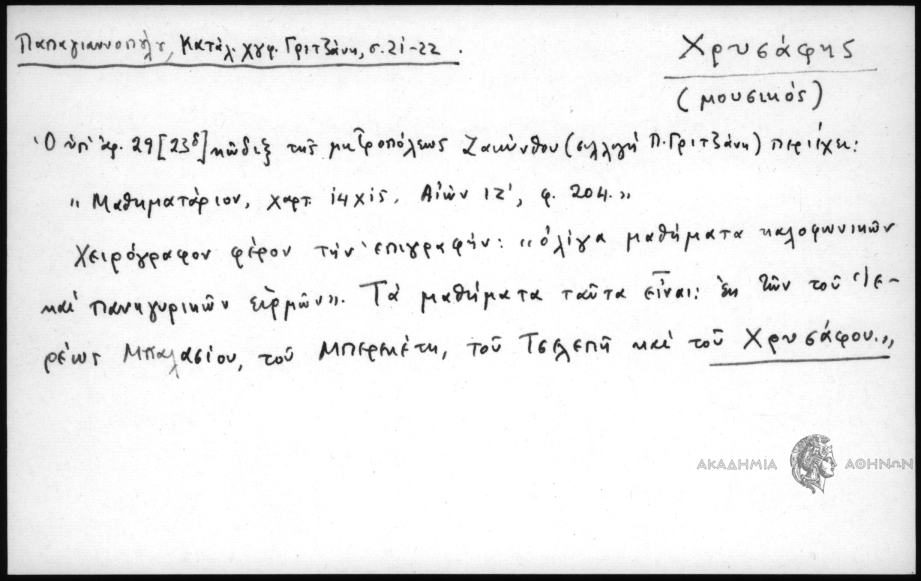 Παπαγιαννοπούλου, Κατάλ. χγφ. Γριτζάνη, σ. 21-22.
Χρυσάφης
(μουσικός)
Ὁ ὑπ' ἀρ. 29 [23δ] κῶδιξ τῆς μητροπόλεως Ζακύνθου (συλλογή Π. Γριτζάνη) περιέχει:
"Μαθηματάριον, χαρτ. 14Χ15. Αἰών ΙΖ', φ. 204."
Χειρόγραφον φέρον τήν ἐπιγραφήν: "ὀλίγα μαθήματα καλοφωνικῶν
καί πανηγυρικῶν εἱρμῶν". Τά μαθήματα ταῦτα εἶναι: ἐκ τῶν τοῦ Ἱε-
ρέως Μπαλασίου, τοῦ Μπερεκέτη, τοῦ Τσελεπῆ καί τοῦ Χρυσάφου."
ΑΚΑΔΗΜΙΑ ΑΘΗΝΩΝ